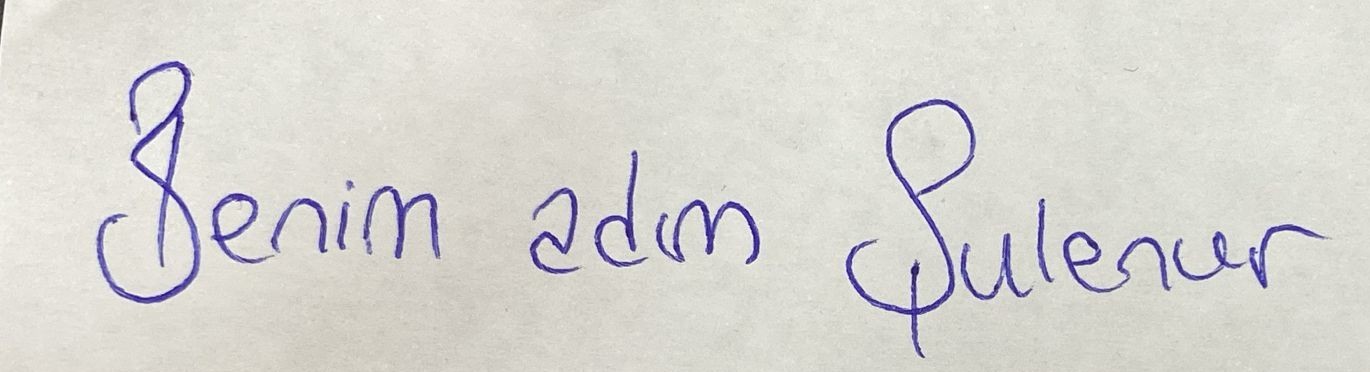 Benim adım Şulenur